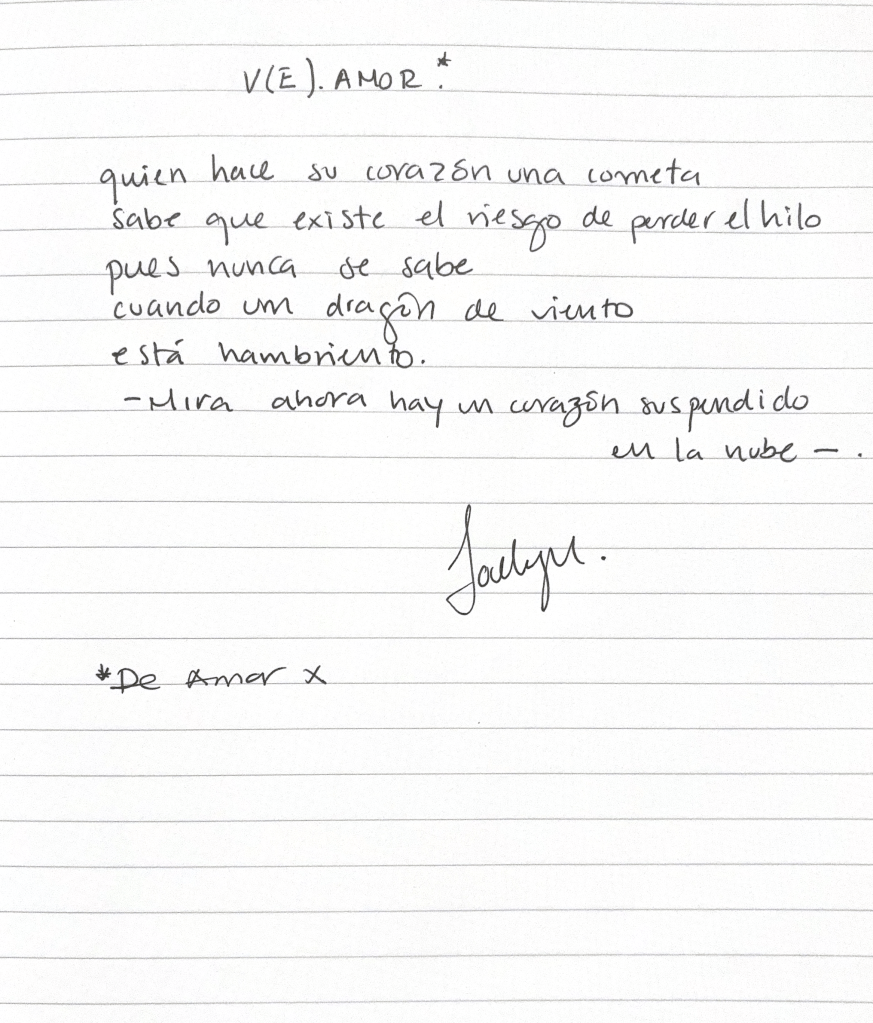 V(E). AMOR.*
quien hace su corazón una cometa
sabe que existe el riesgo de perder el hilo
pues nunca se sabe
cuando un dragón de viento
está hambriento.
-Mira ahora hay un corazón suspendido
en la nube -.
*De Amor x